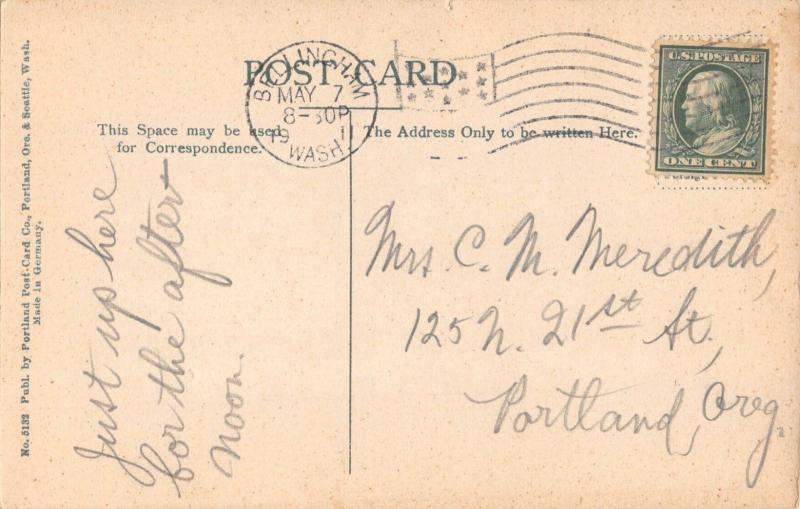 POST CARD
BELLINGHAM
MAY 7
8-30P
19 11
WASH.
U.S. POSTAGE
ONE CENT
This Space may be used
for Correspondence.
The Address Only to be written Here.
Just up here
for the after
noon.
Mrs. C. M. Meredith,
125 N. 21st St,
Portland, Oreg.
No. 5132 Publ. by Portland Post-Card Co., Portland, Ore. & Seattle, Wash.
Made in Germany.